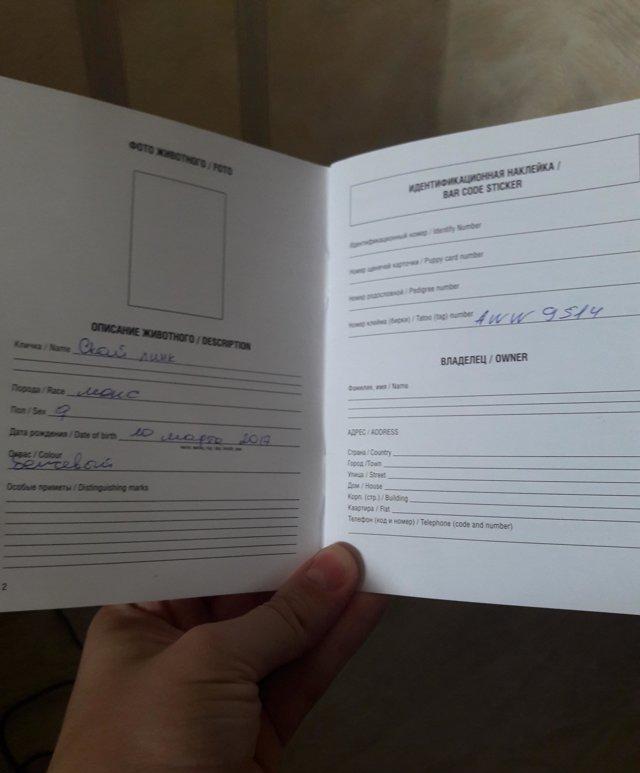 ФОТО ЖИВОТНОГО / FOTO
ОПИСАНИЕ ЖИВОТНОГО / DESCRIPTION
Кличка / Name Скай линк
Порода / Race мопс
Пол / Sex ♀
Дата рождения / Date of birth 10 марта 2017
Окрас / Colour
бежевый
Особые приметы / Distinguishing marks
2
ИДЕНТИФИКАЦИОННАЯ НАКЛЕЙКА /
BAR CODE STICKER
Идентификационный номер / Identity Number
Номер щенячей карточки / Puppy card number
Номер родословной / Pedigree number
Номер клейма (бирки) / Tatoo (tag) number AWW 9514
ВЛАДЕЛЕЦ / OWNER
Фамилия, имя / Name
АДРЕС / ADDRESS
Страна / Country
Город / Town
Улица / Street
Дом / House
Корп. (стр.) / Building
Квартира / Flat
Телефон (код и номер) / Telephone (code and number)